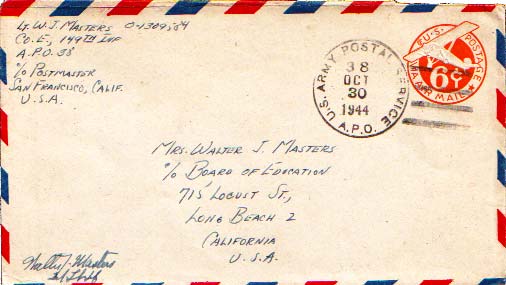 Lt. W. J. Masters O-1309584
Co. E, 149th Inf
A.P.O. 38
c/o Postmaster
San Francisco, Calif.
U.S.A.
U.S. POSTAGE
6¢
VIA AIR MAIL
U.S. ARMY POSTAL SERVICE
38
OCT
30
1944
A.P.O.
Mrs. Walter J. Masters
c/o Board of Education
715 Locust St.,
Long Beach 2
California
U.S.A.
Walter J. Masters